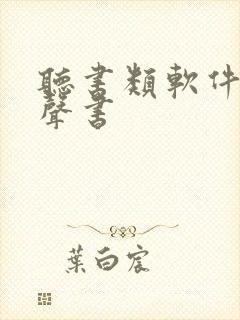 聽書類軟件
聲書
葉白宸